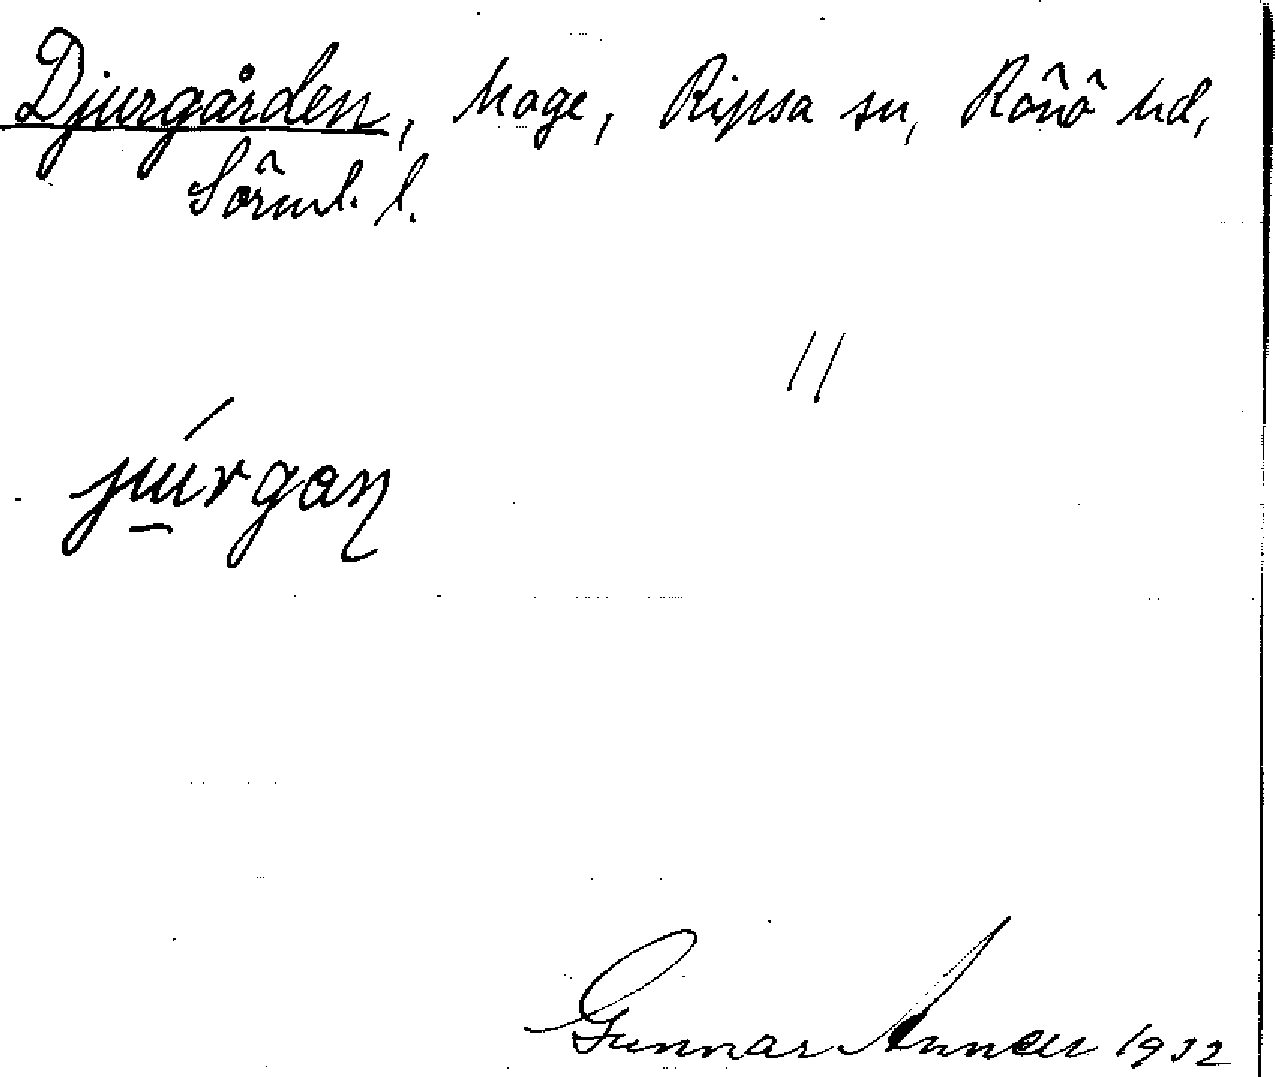 Djurgården, hage, Ripsa sn, Rönö hd,
Sörml. l.
//
júrgaṇ
Gunnar Anner 1932